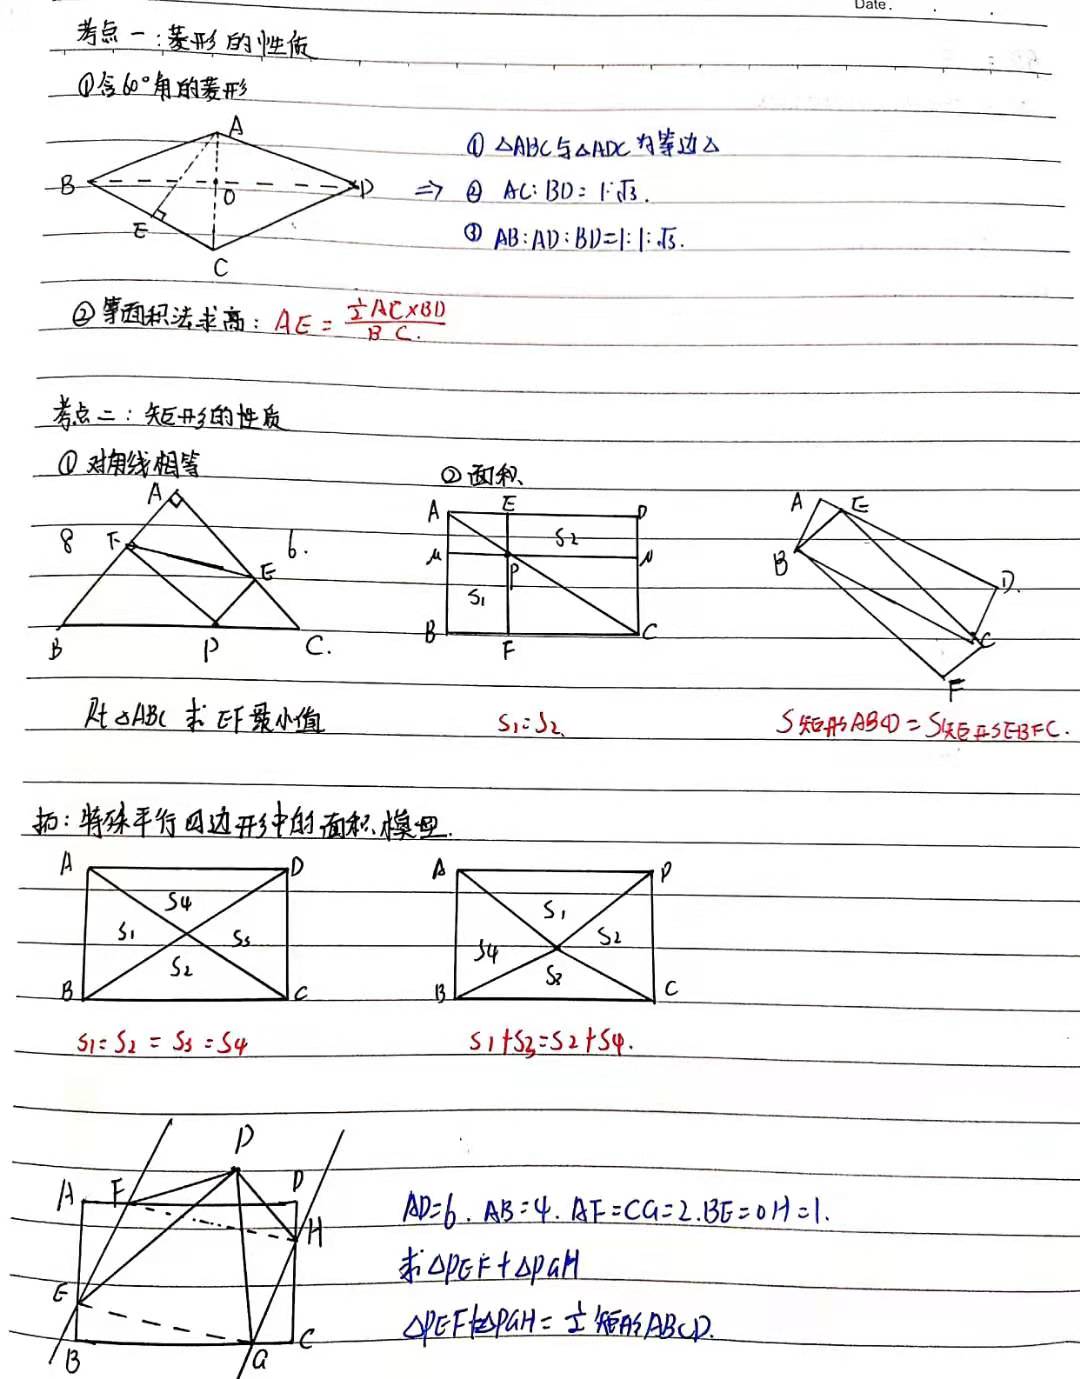 Date.
考点一:菱形的性质
①含60°角的菱形
A
B
O
D
E
C
① △ABC与△ADC为等边△
⇒ ② AC:BD=1:√3.
③ AB:AD:BD=1:1:√3.
②等面积法求高: AE = ½AC×BD / BC.
考点二:矩形的性质
①对角线相等
②面积
A
8
F
6.
E
B
P
C.
A
E
D
M
S2
N
P
S1
B
F
C
A
E
B
D.
C
F
Rt△ABC 求EF最小值
S1=S2
S矩形ABCD=S矩形EBFC.
拓:特殊平行四边形中的面积模型.
A
D
S4
S1
S3
S2
B
C
A
D
S1
S2
S4
S3
B
C
S1=S2=S3=S4
S1+S3=S2+S4.
P
A
F
D
H
E
B
G
C
AD=6. AB=4. AF=CG=2.BE=DH=1.
求△PEF+△PGH
△PEF+△PGH=½矩形ABCD.